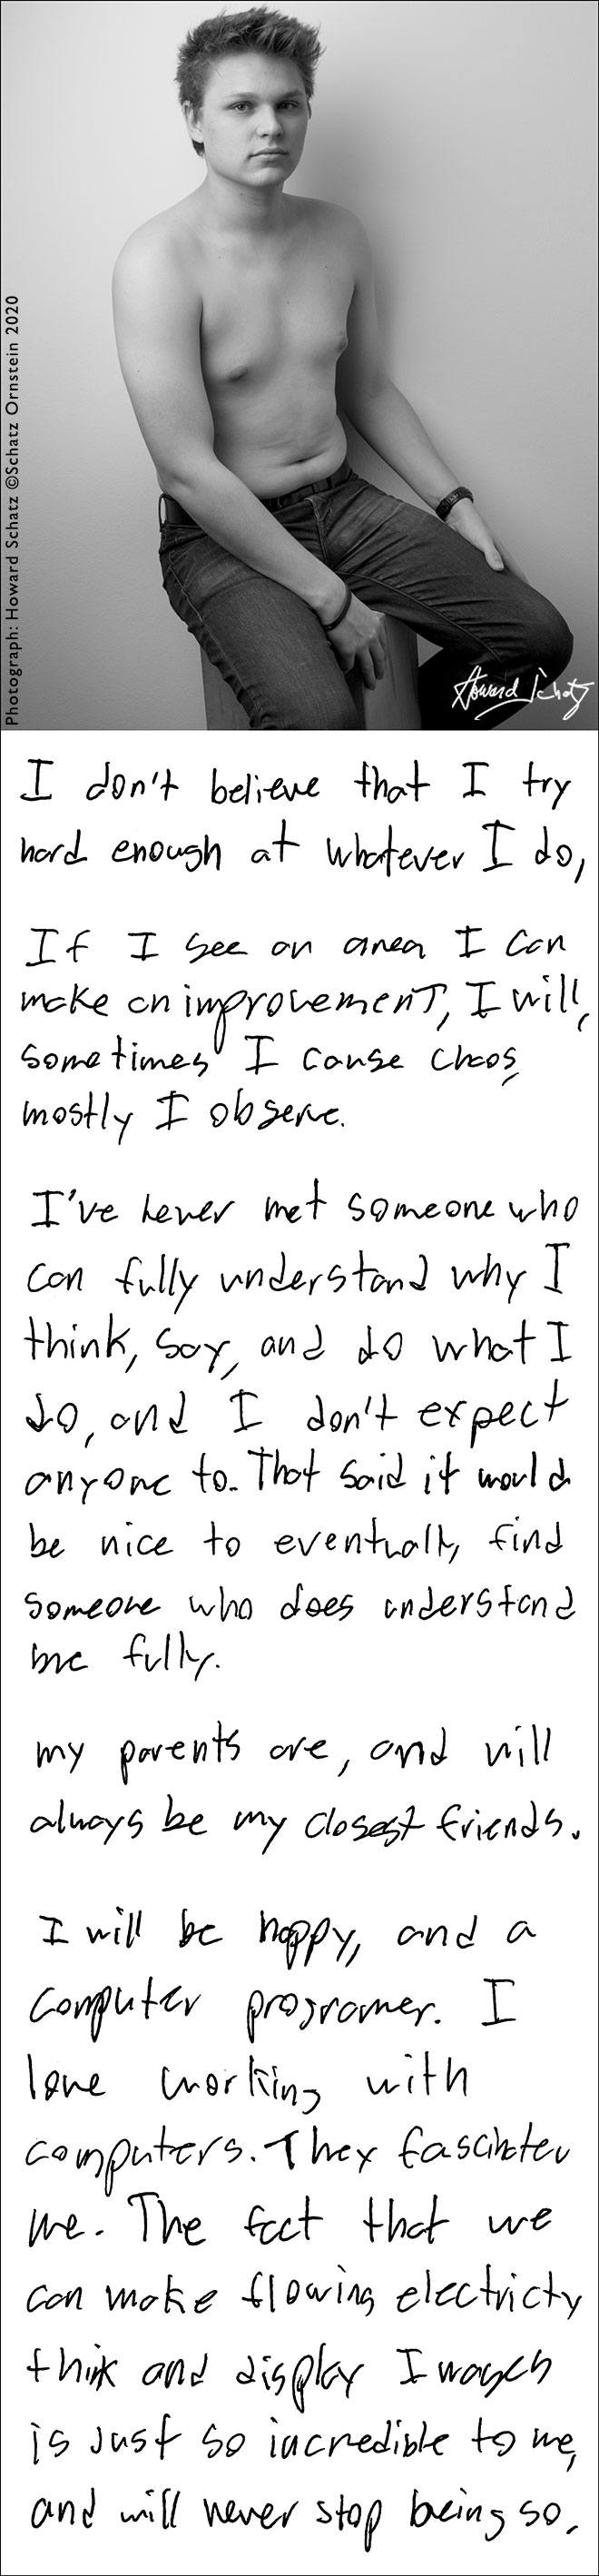 Photograph: Howard Schatz ©Schatz Ornstein 2020
Howard Schatz
I don't believe that I try
hard enough at whatever I do,
If I see an area I can
make an improvement, I will,
sometimes I cause chaos,
mostly I observe.
I've never met someone who
can fully understand why I
think, say, and do what I
do, and I don't expect
anyone to. That said it would
be nice to eventually find
someone who does understand
me fully.
my parents are, and will
always be my closest friends.
I will be happy, and a
computer programer. I
love working with
computers. They fascinate
me. The fact that we
can make flowing electricty
think and display Images
is just so incredible to me,
and will never stop being so.